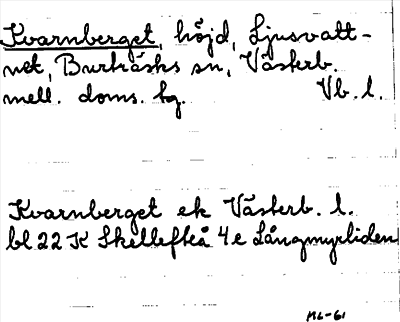 Kvarnberget, höjd, Ljusvatt-
net, Burträsks sn, Västerb.
mell. doms. hg. Vb. l.
Kvarnberget ek Västerb. l.
bl. 22 K Skellefteå 4e Långmyrliden